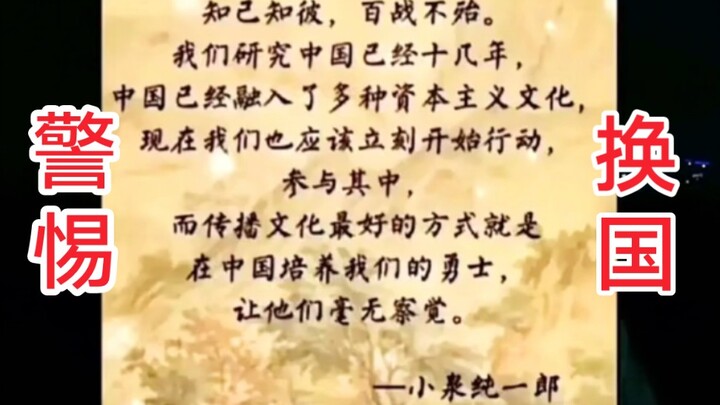 知己知彼，百战不殆。
我们研究中国已经十几年，
中国已经融入了多种资本主义文化，
现在我们也应该立刻开始行动，
参与其中，
而传播文化最好的方式就是
在中国培养我们的勇士，
让他们毫无察觉。
—小泉纯一郎
警惕
换国